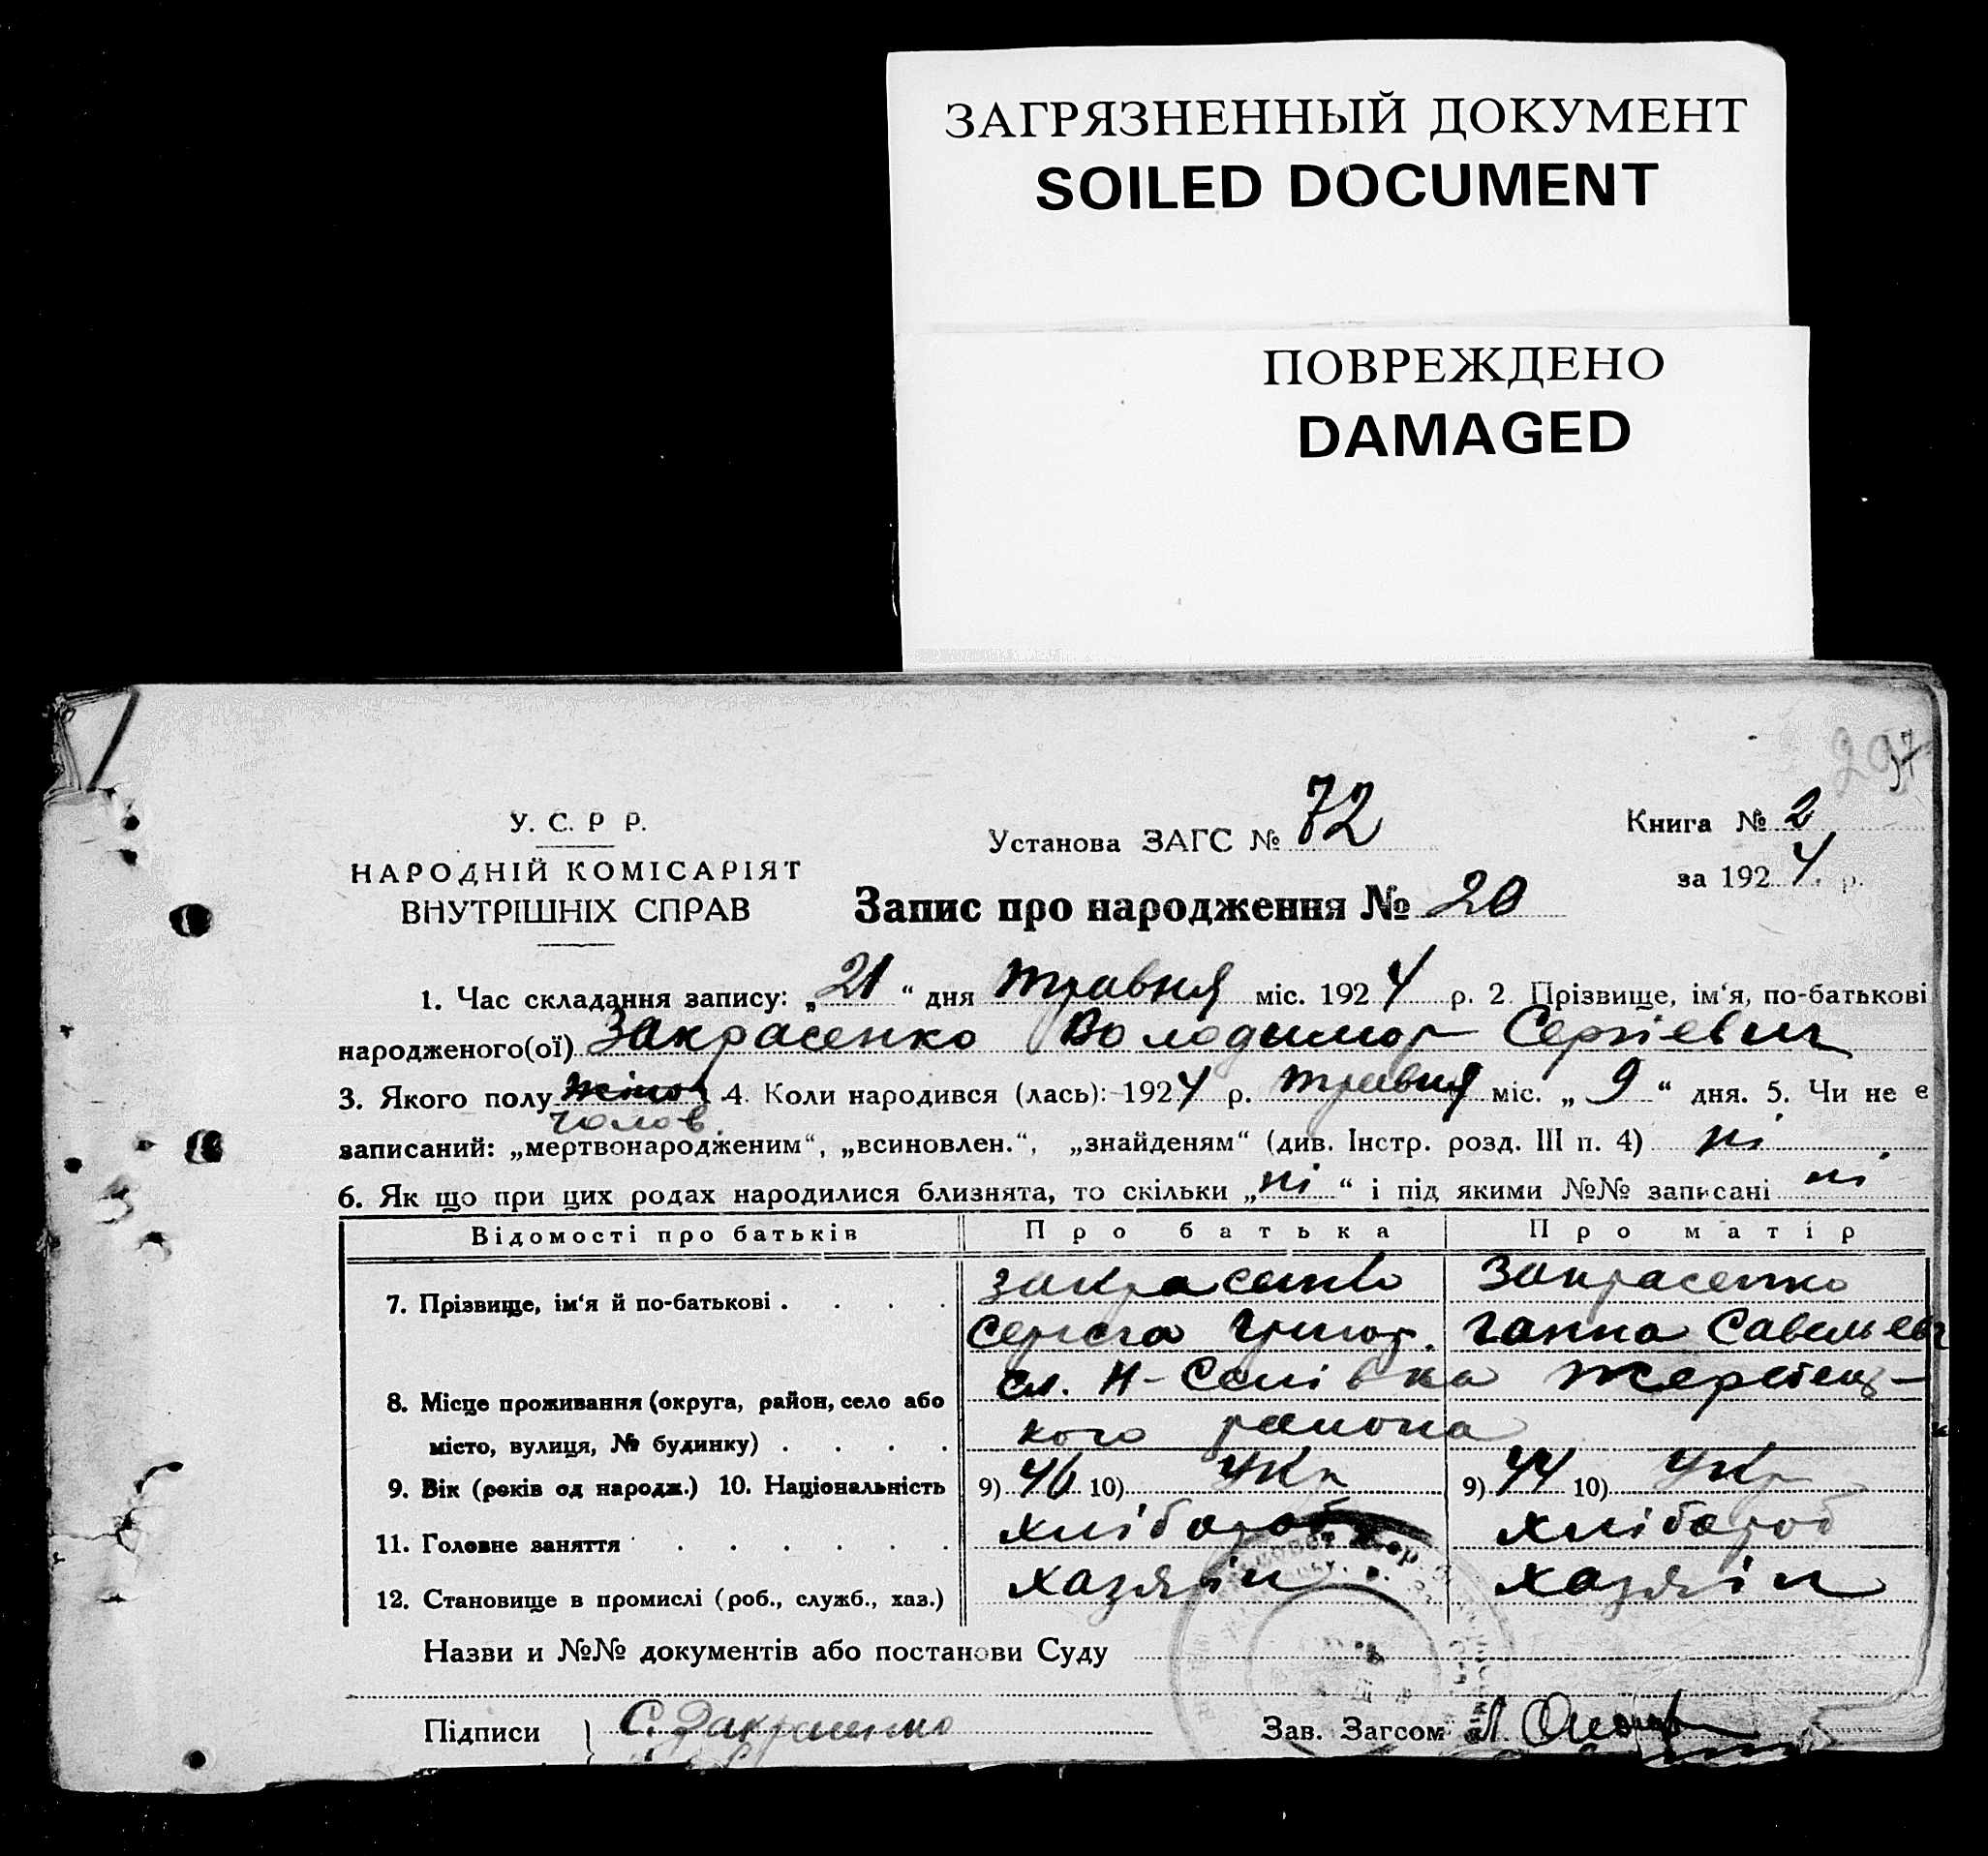 ЗАГРЯЗНЕННЫЙ ДОКУМЕНТ
SOILED DOCUMENT
ПОВРЕЖДЕНО
DAMAGED
297
У. С. Р Р.
НАРОДНІЙ КОМІСАРІЯТ
ВНУТРІШНІХ СПРАВ
Установа ЗАГС № 72
Книга № 2
за 1924 р.
Запис про народження № 20
1. Час складання запису: „21“ дня травня міс. 1924 р. 2. Прізвище, ім‘я, по-батькові
народженого(ої) Закрасенко Володимор Сергієвич
3. Якого полу жіноч 4. Коли народився (лась): 1924 р. травня міс. „9“ дня. 5. Чи не є
чолов.
записаний: „мертвонародженим“, „всиновлен.“, „знайденям“ (див. Інстр. розд. III п. 4) ні
6. Як що при цих родах народилися близнята, то скільки „ні“ і під якими №№ записані ні
Відомості про батьків Про батька Про матір
7. Прізвище, ім‘я й по-батькові . . . . Закрасенко Закрасенко
Сергєга Григор. Ганна Савельев
8. Місце проживання (округа, район, село або сл. Н-Селівка Жеребец-
місто, вулиця, № будинку) . . . . кого района
9. Вік (років од народж.) 10. Національність 9) 46 10) Укр 9) 44 10) Укр
11. Головне заняття . . . . . . хлібороб хлібороб
12. Становище в промислі (роб., служб., хаз.) хазяін хазяін
Назви и №№ документів або постанови Суду
Підписи } С. Закрасенко Зав. Загсом